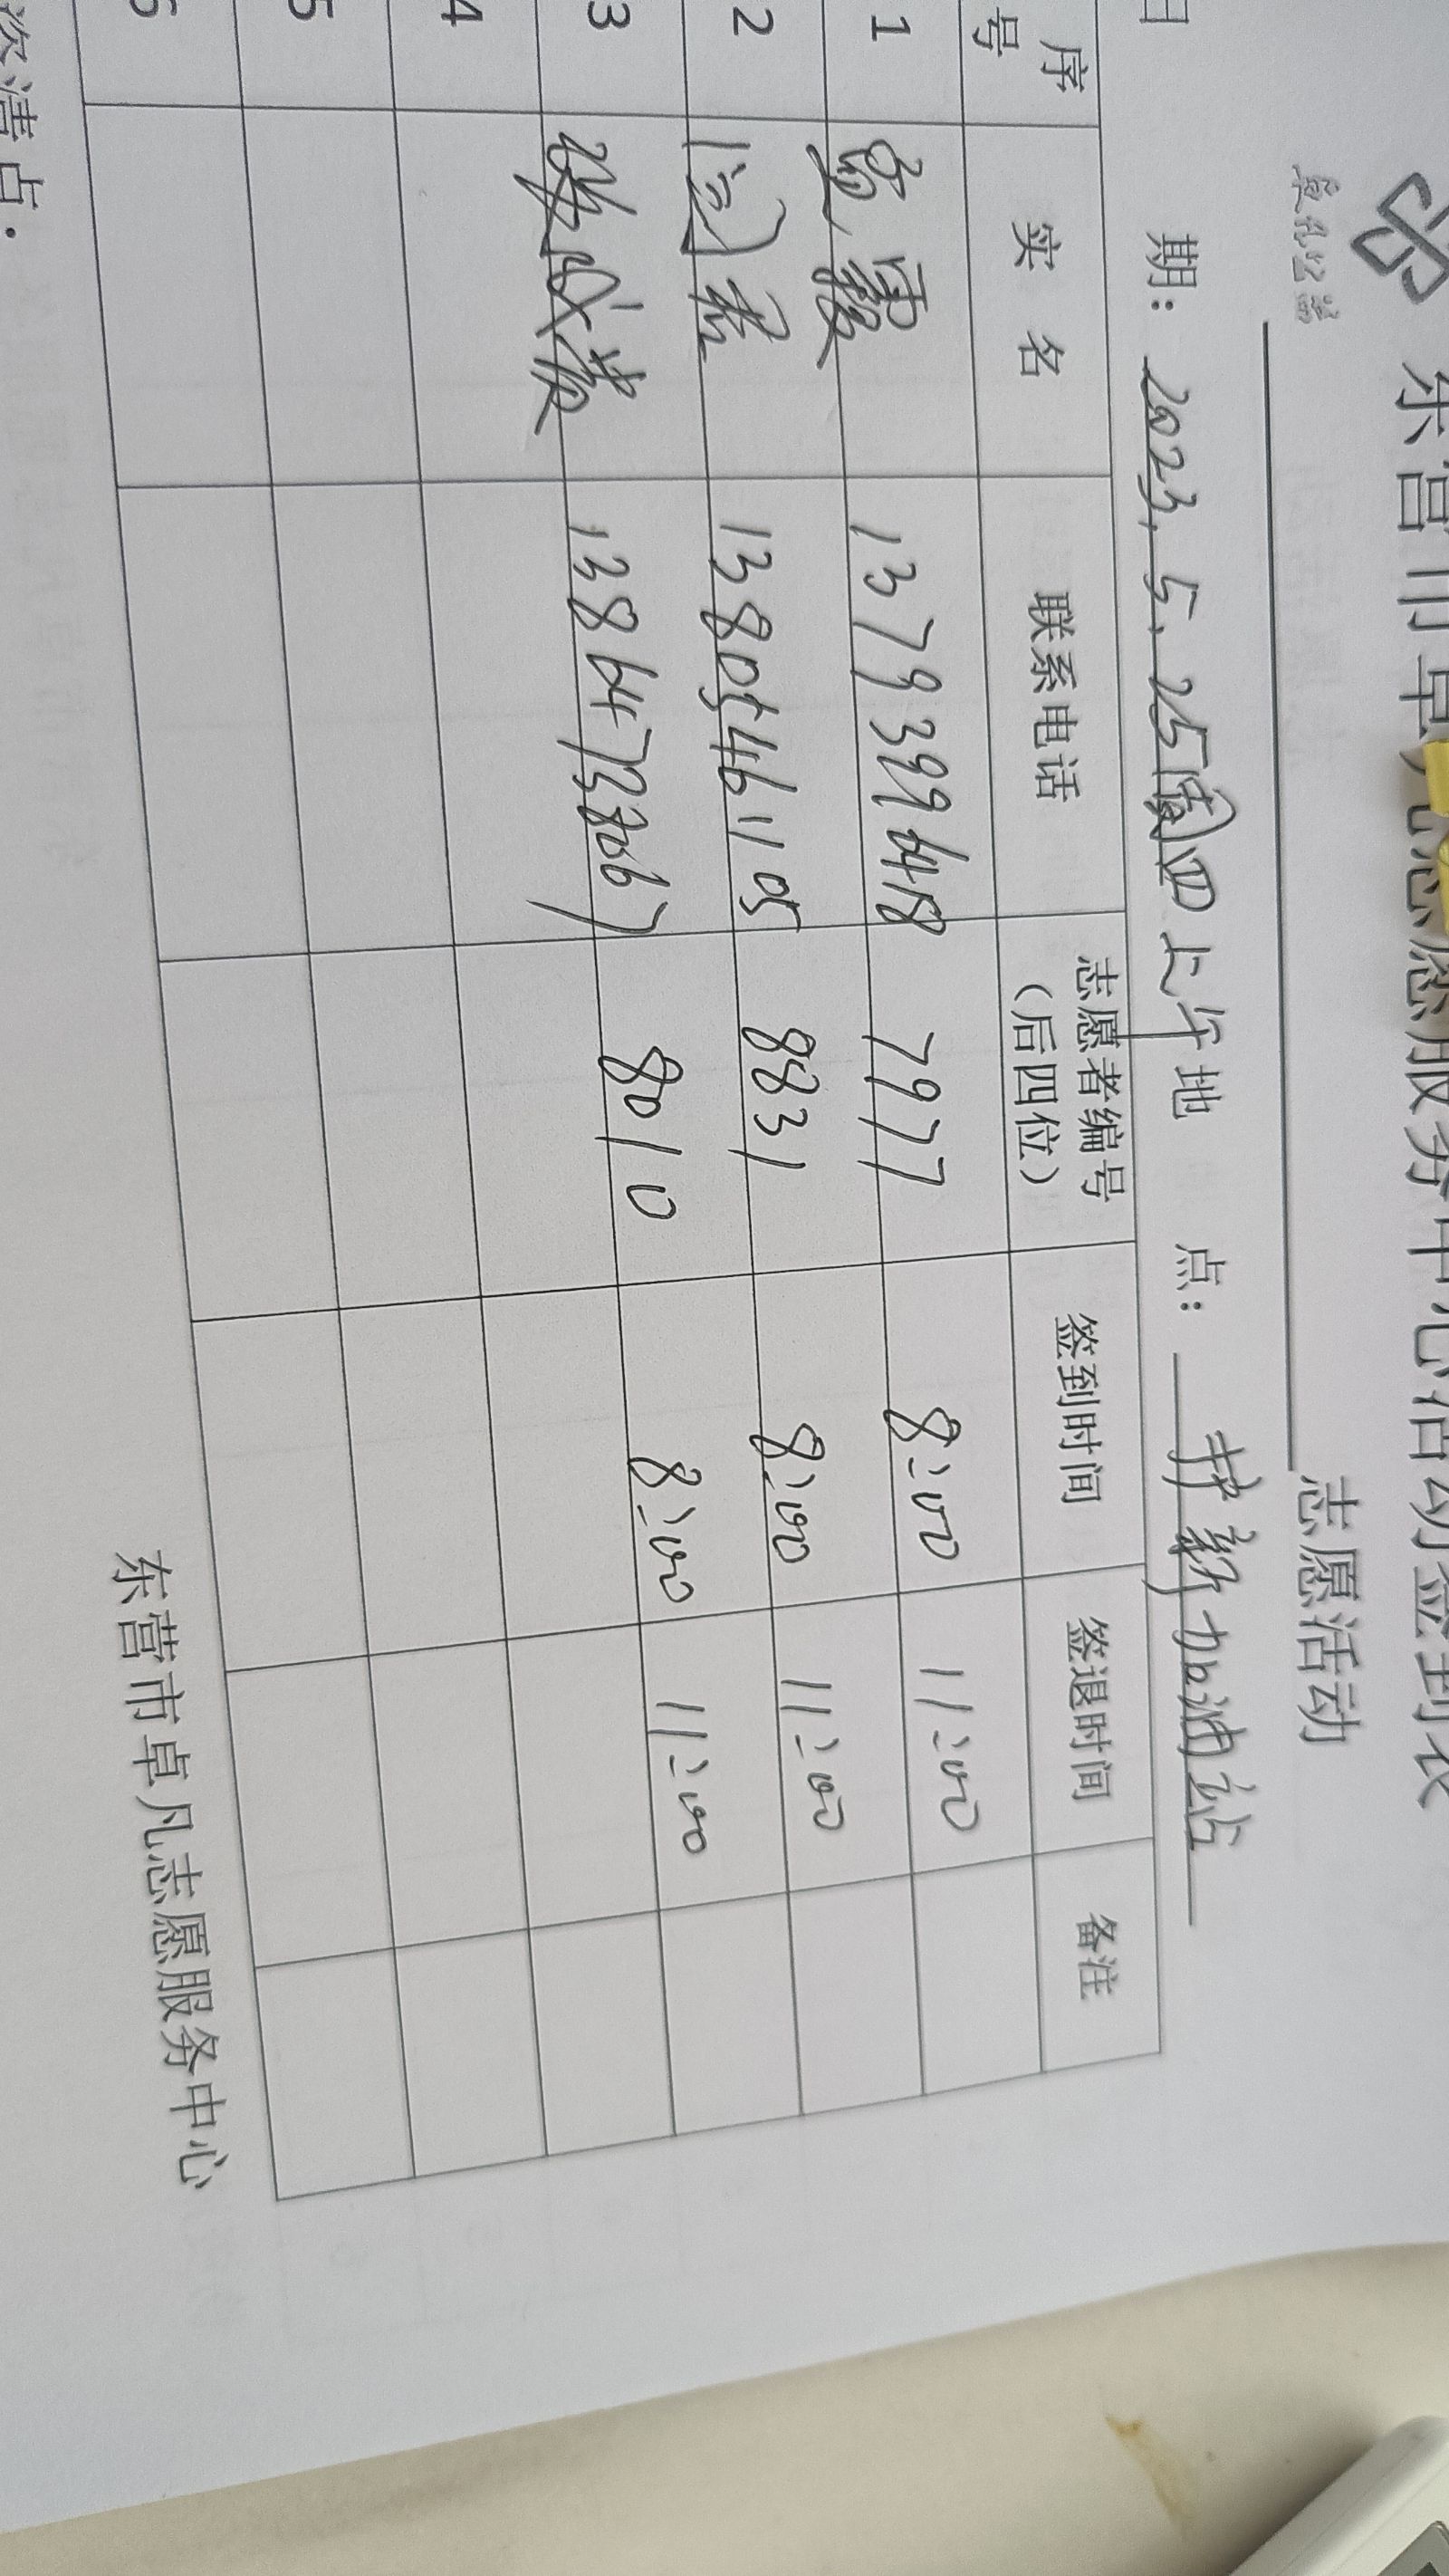 卓凡公益
东营市卓凡志愿服务中心活动签到表
志愿活动
日 期：2023.5.25周四上午 地 点： 加油站
序号 实名 联系电话 志愿者编号（后四位） 签到时间 签退时间 备注
1 13793999648 7977 8:00 11:00
2 13805461105 8831 8:00 11:00
3 8010 8:00 11:00
4
5
6
资清点：
东营市卓凡志愿服务中心